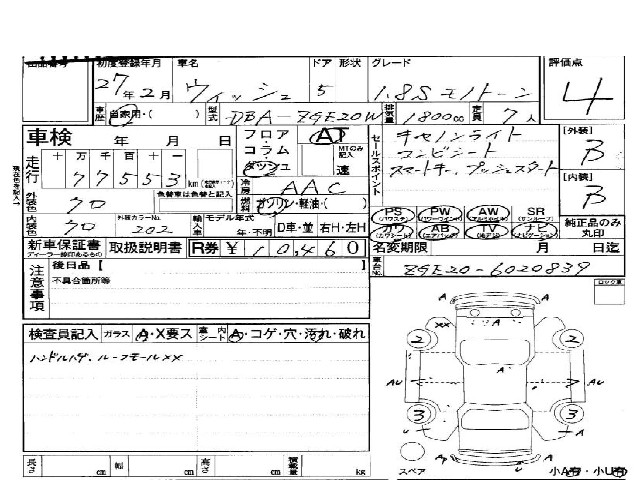 出品番号 初度登録年月 車名 ドア 形状 グレード 評価点
27年2月 ウィッシュ 5 1.8S モノトーン 4
車歴 自家用・( ) 型式 DBA-ZGE20W 排気量 1800cc 定員 7人
車検 年 月 日 フロア・コラム・ダッシュ AT MTのみ記入 速
セールスポイント キセノンライト
コンビシート
スマートキー、プッシュスタート
[外装] B
[内装] B
走行 十 万 千 百 十 一
77553 km
冷房 AAC
色替車は色替と記入 燃料 ガソリン・軽油・( )
外装色 クロ
内装色 クロ 外装カラーNo. 202 輸入車 モデル年式 年・不明 D車・並 右H・左H
PS PW AW SR
カワ AB TV ナビ
純正品のみ丸印
新車保証書 取扱説明書 R券 ¥10,460 名変期限 月 日迄
ディーラー検印あるもの
車台No. ZGE20-6020839
注意事項 後日品 [ ]
不具合箇所等
ロック車
検査員記入 ガラス A・X要ス 室内シート A・コゲ・穴・汚れ・破れ
ハンドルハゲ、ルーフモールXX
2 XX A A 2
AU AU
3 3
U A A U
スペア 小A有・小U有
長さ cm 幅 cm 高さ cm 積載量 kg